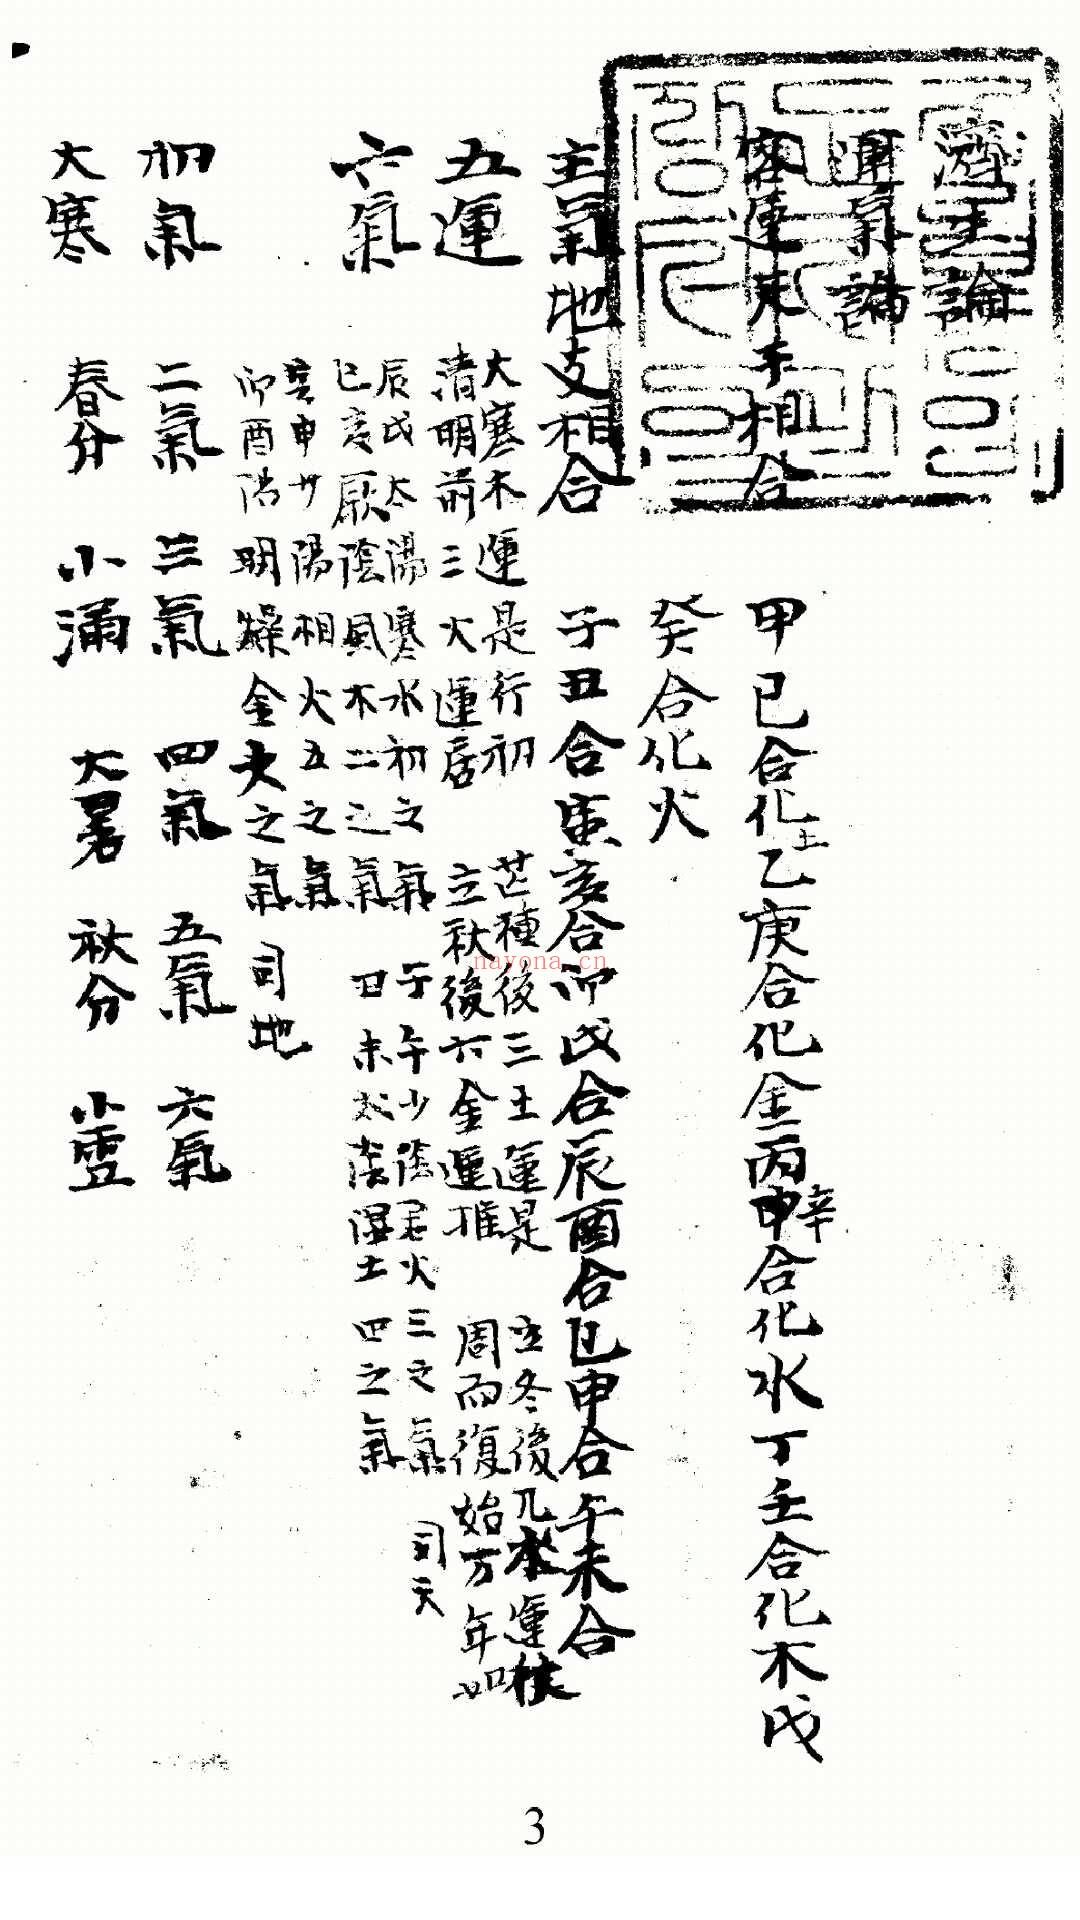 濟生論
運氣論
客運天干相合 甲己合化土乙庚合化金丙辛合化水丁壬合化木戊
癸合化火
主氣地支相合 子丑合寅亥合卯戌合辰酉合巳申合午未合
五運 大寒木運是行初
清明前三火運居
芒種後三土運是
立秋後六金運推
立冬後九水運
周而復始万年如
六氣 辰戌太陽寒水初之氣
巳亥厥陰風木二之氣
子午少陰君火三之氣 司天
丑未太陰濕土四之氣
寅申少陽相火五之氣
卯酉陽明燥金六之氣 司地
初氣 二氣 三氣 四氣 五氣 六氣
大寒 春分 小滿 大暑 秋分 小雪
nayona.cn
3